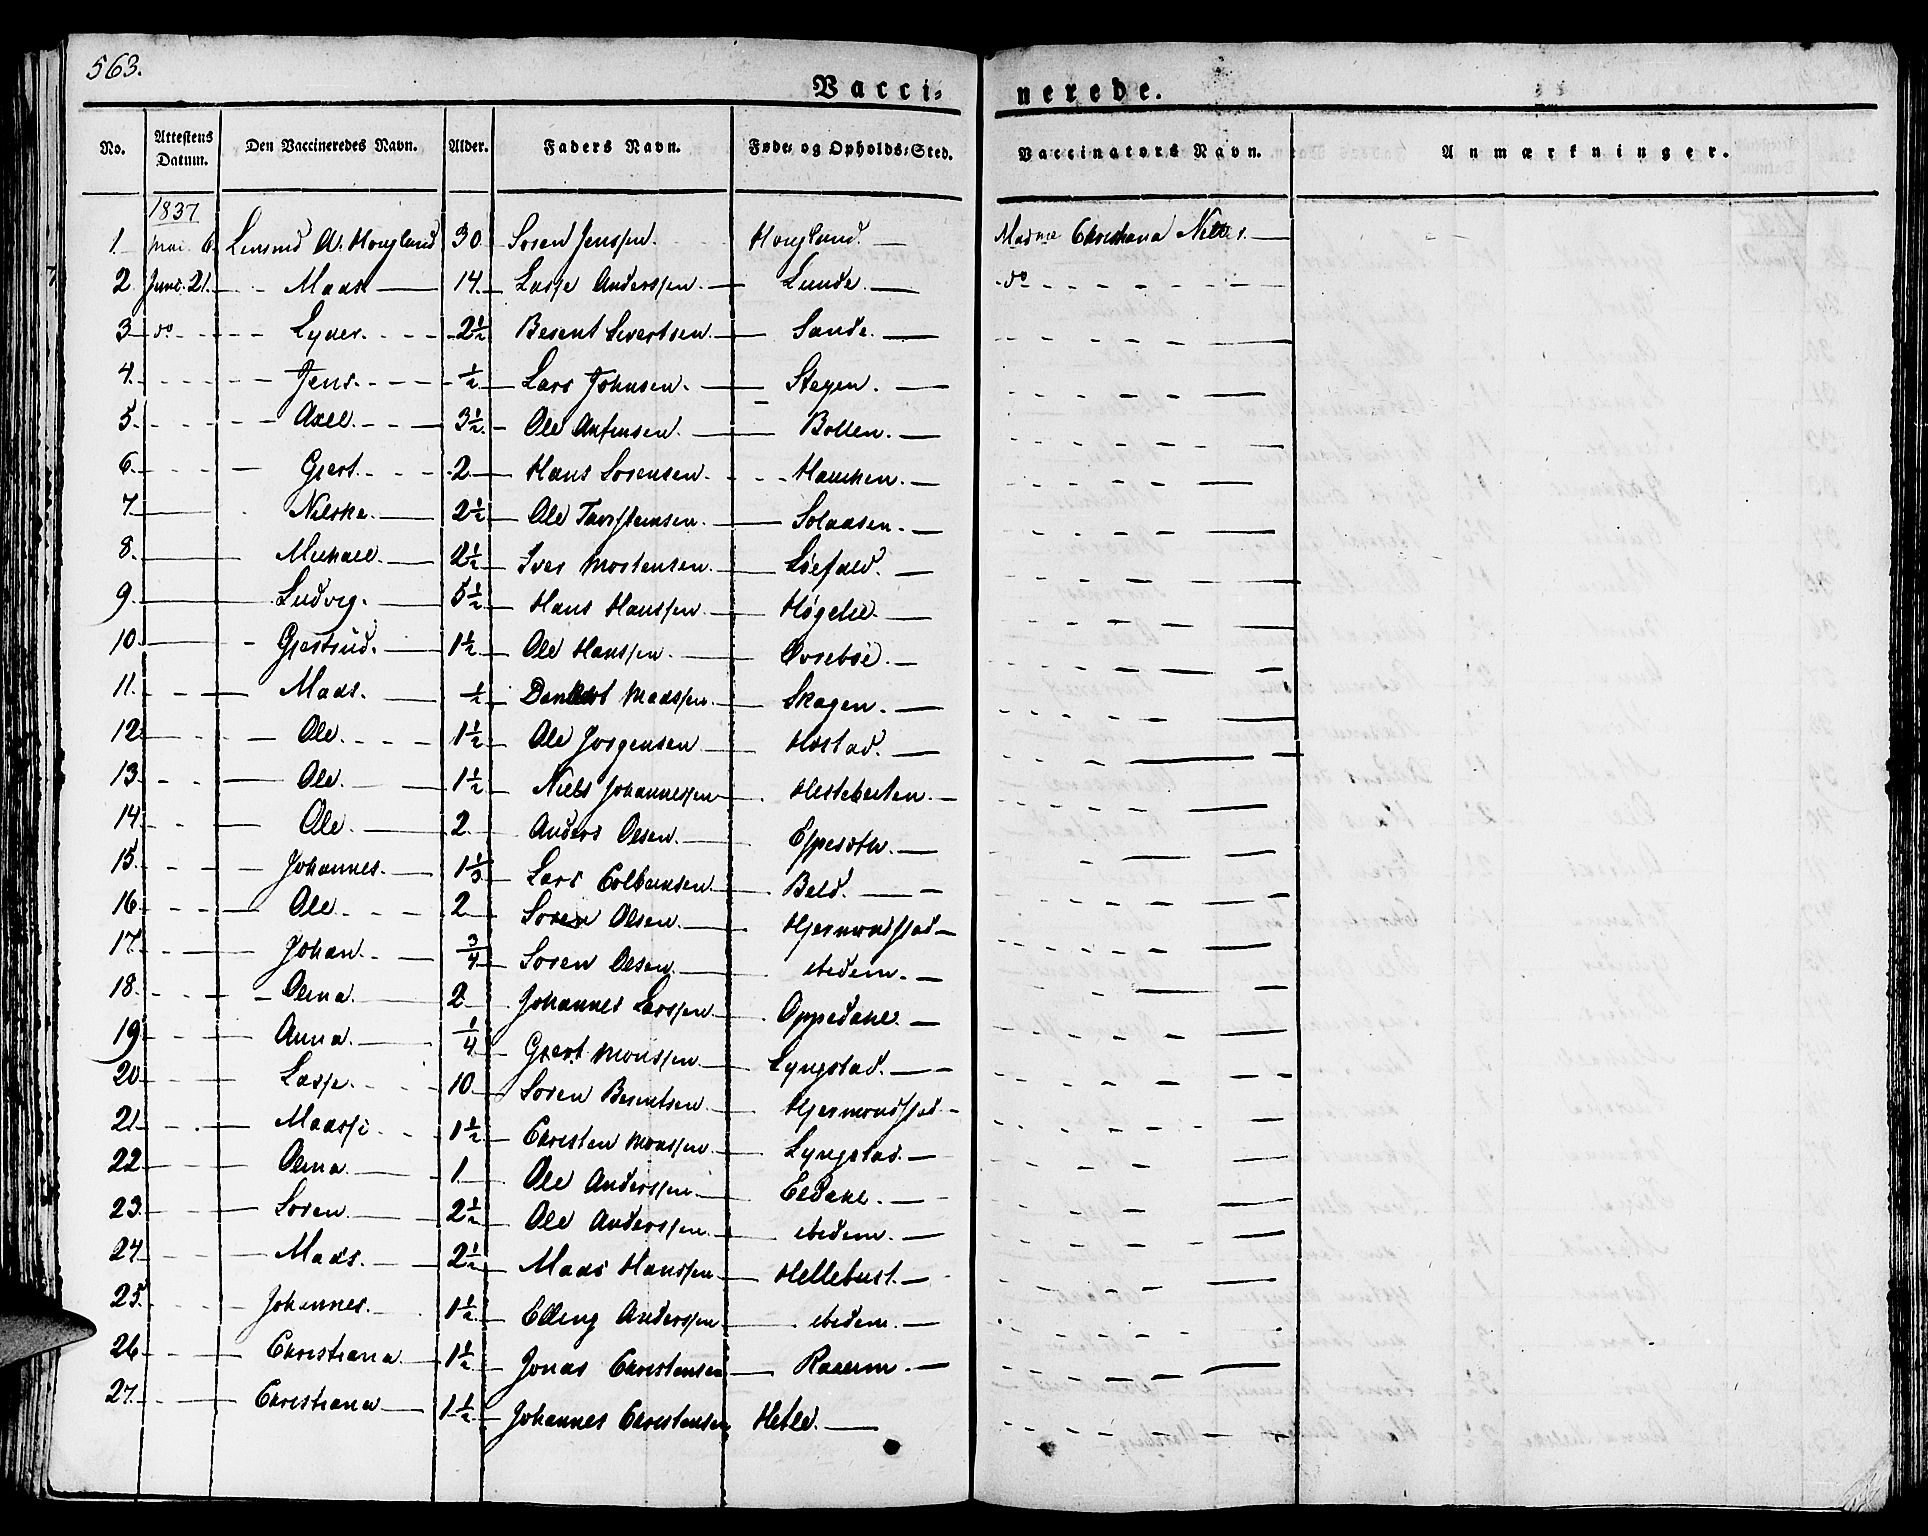 563.
Vacci- nerede.
No. Attestens Datum. Den Vaccineredes Navn. Alder. Faders Navn. Føde- og Opholds-Sted. Vaccinators Navn. Anmærkninger.
1837
1 Mai 6. A. Hougland 30 Soren Jenssen. Hougland. Christiana
2 Juni 21. Mads 14. Lasse Anderssen. Lunde. do
3 do Lyder. 2½ Berent Sivertsen. Sande.
4. Jens. ½ Lars Johnsen. Steyen.
5. Axel. 3½ Ole Anfinsen. Bollen.
6. Gjert. 2 Hans Sorensen. Haucken.
7. Nilska. 2½ Ole Torsteinsen. Solaasen.
8. Michael. 2½ Iver Mortensen. Löefald.
9. Ludvig. 5½ Hans Hanssen. Högelie.
10. Gjertrud. 1½ Ole Hanssen. Ovreböe.
11. Mads. ½ Madssen. Skagen.
12. Ole. 1½ Ole Jorgensen Hostad.
13. Ole. 1½ Niels Johannessen Hesteberten.
14. Ole. 2 Anders Olsen. Espesoth.
15. Johannes. 1⅓ Lars Colbensen Beld.
16. Ole. 2 Soren Olsen. Hjermondstad
17. Johan. ¾ Soren Olsen. ibidem.
18. Olina. 2 Johannes Larssen Oppedahl.
19. Anna. ¼ Gjert Monssen Lyngstad.
20 Lasse. 10 Soren Berentsen Hjermondstad.
21. Madssi 1½ Christen Monssen Lyngstad.
22 Olina. 1 Ole Anderssen Eldahl.
23. Soren. 2½ Ole Anderssen. ibidem.
24. Mads. 2½ Mads Hanssen Hellebust.
25. Johannes. 1½ Elling Anderssen ibidem.
26 Christiana. 1½ Jonas Christensen Raaeim.
27. Christiana 1½ Johannes Christensen Hetle.